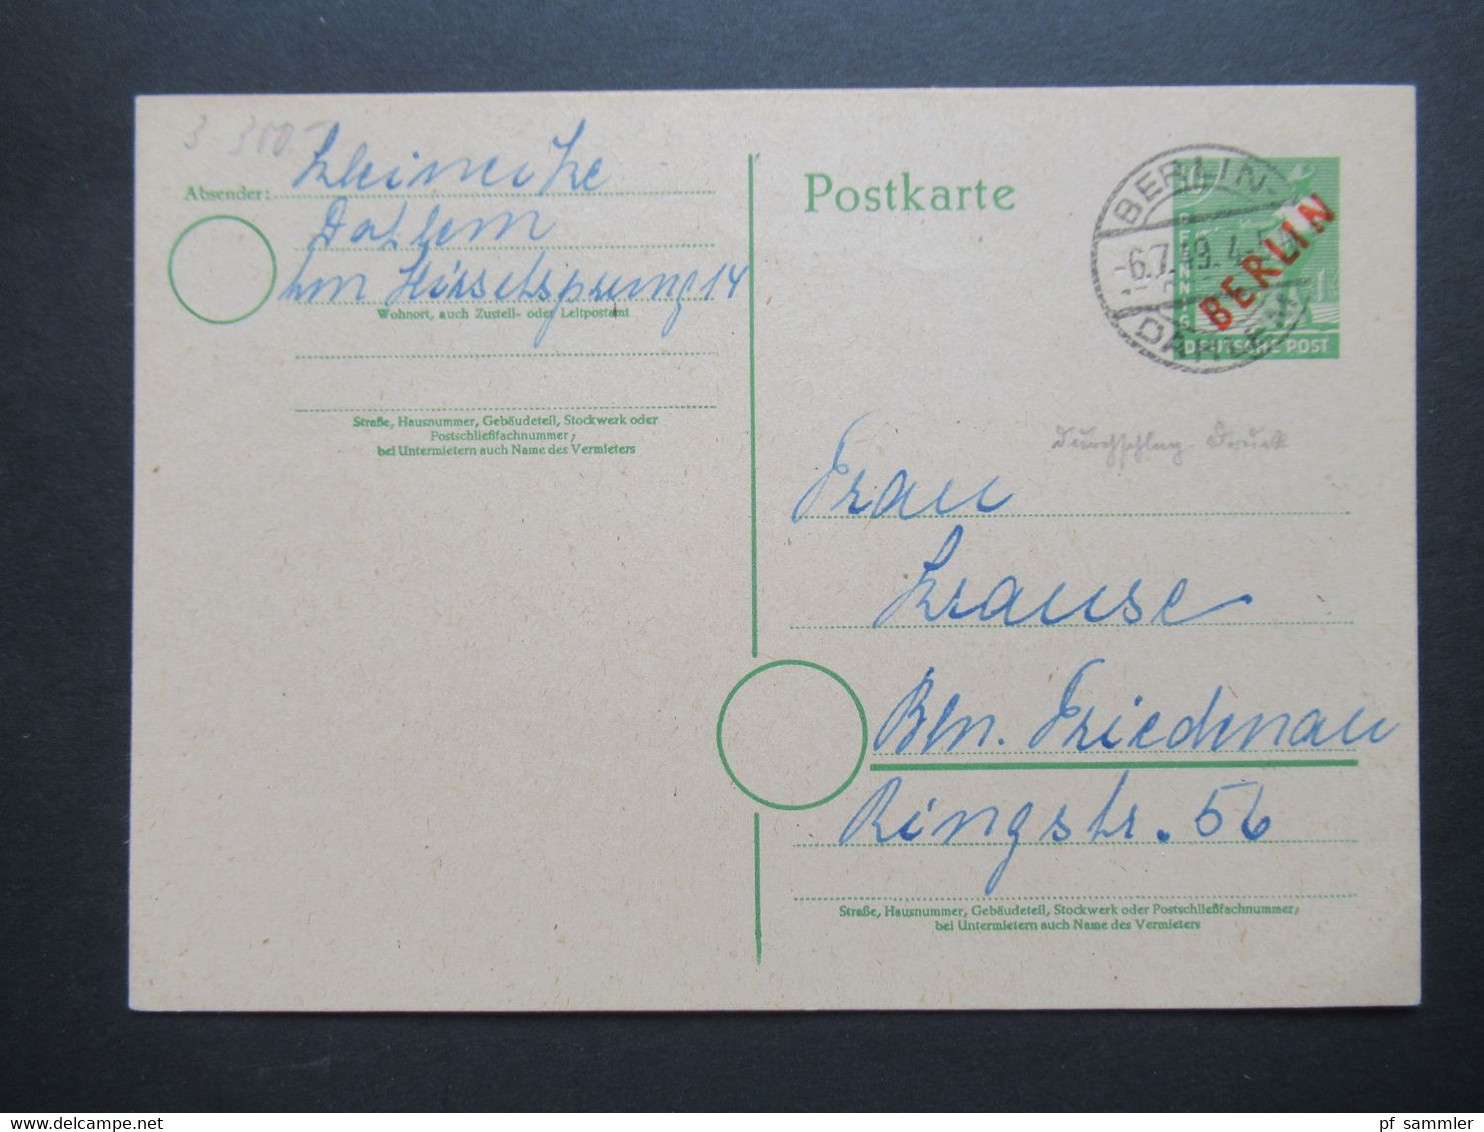 3 300.-
Absender: Kleinecke
Dahlem
Im Hirschsprung 14
Wohnort, auch Zustell- oder Leitpostamt
Straße, Hausnummer, Gebäudeteil, Stockwerk oder
Postschließfachnummer;
bei Untermietern auch Name des Vermieters
Postkarte
BERLIN
-6.7.49. 4
DAHLEM
PFENNIG
BERLIN
DEUTSCHE POST
Durchschlag Druck
Frau
Krause
Bln. Friedenau
Ringstr. 56
Straße, Hausnummer, Gebäudeteil, Stockwerk oder Postschließfachnummer;
bei Untermietern auch Name des Vermieters
pf_sammler